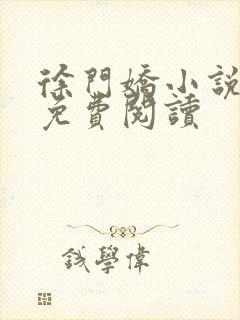 徐門嬌小說
免費閱讀
錢學偉